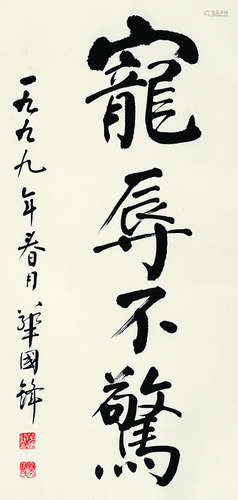 寵辱不驚
一九九九年春月
華國鋒